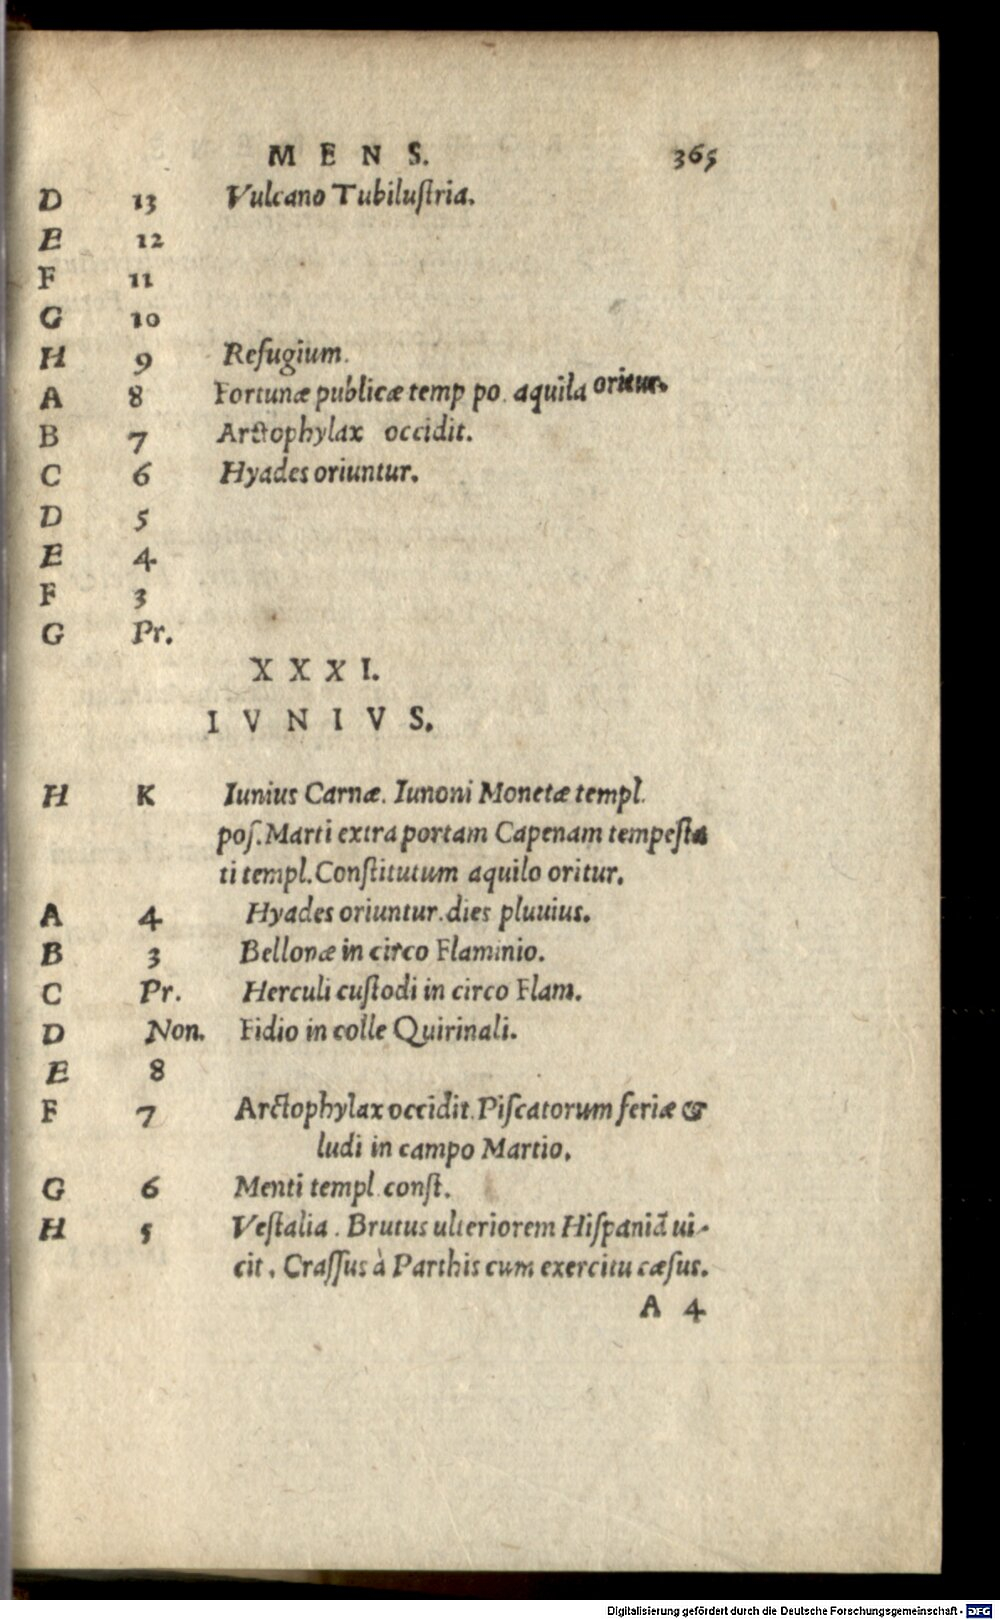 M E N S. 365
D 13 Vulcano Tubiluſtria.
E 12
F 11
G 10
H 9 Refugium.
A 8 Fortunæ publicæ temp po. aquila oritur.
B 7 Arctophylax occidit.
C 6 Hyades oriuntur.
D 5
E 4
F 3
G Pr.
X X X I.
I V N I V S.
H K Iunius Carnæ. Iunoni Monetæ templ.
poſ. Marti extra portam Capenam tempeſta
ti templ. Conſtitutum aquilo oritur.
A 4 Hyades oriuntur. dies pluuius.
B 3 Bellonæ in circo Flaminio.
C Pr. Herculi cuſtodi in circo Flam.
D Non. Fidio in colle Quirinali.
E 8
F 7 Arctophylax occidit. Piſcatorum feriæ &
ludi in campo Martio.
G 6 Menti templ. conſt.
H 5 Veſtalia. Brutus ulteriorem Hiſpaniā ui-
cit. Craſſus à Parthis cum exercitu cæſus.
A 4
Digitalisierung gefördert durch die Deutsche Forschungsgemeinschaft - DFG